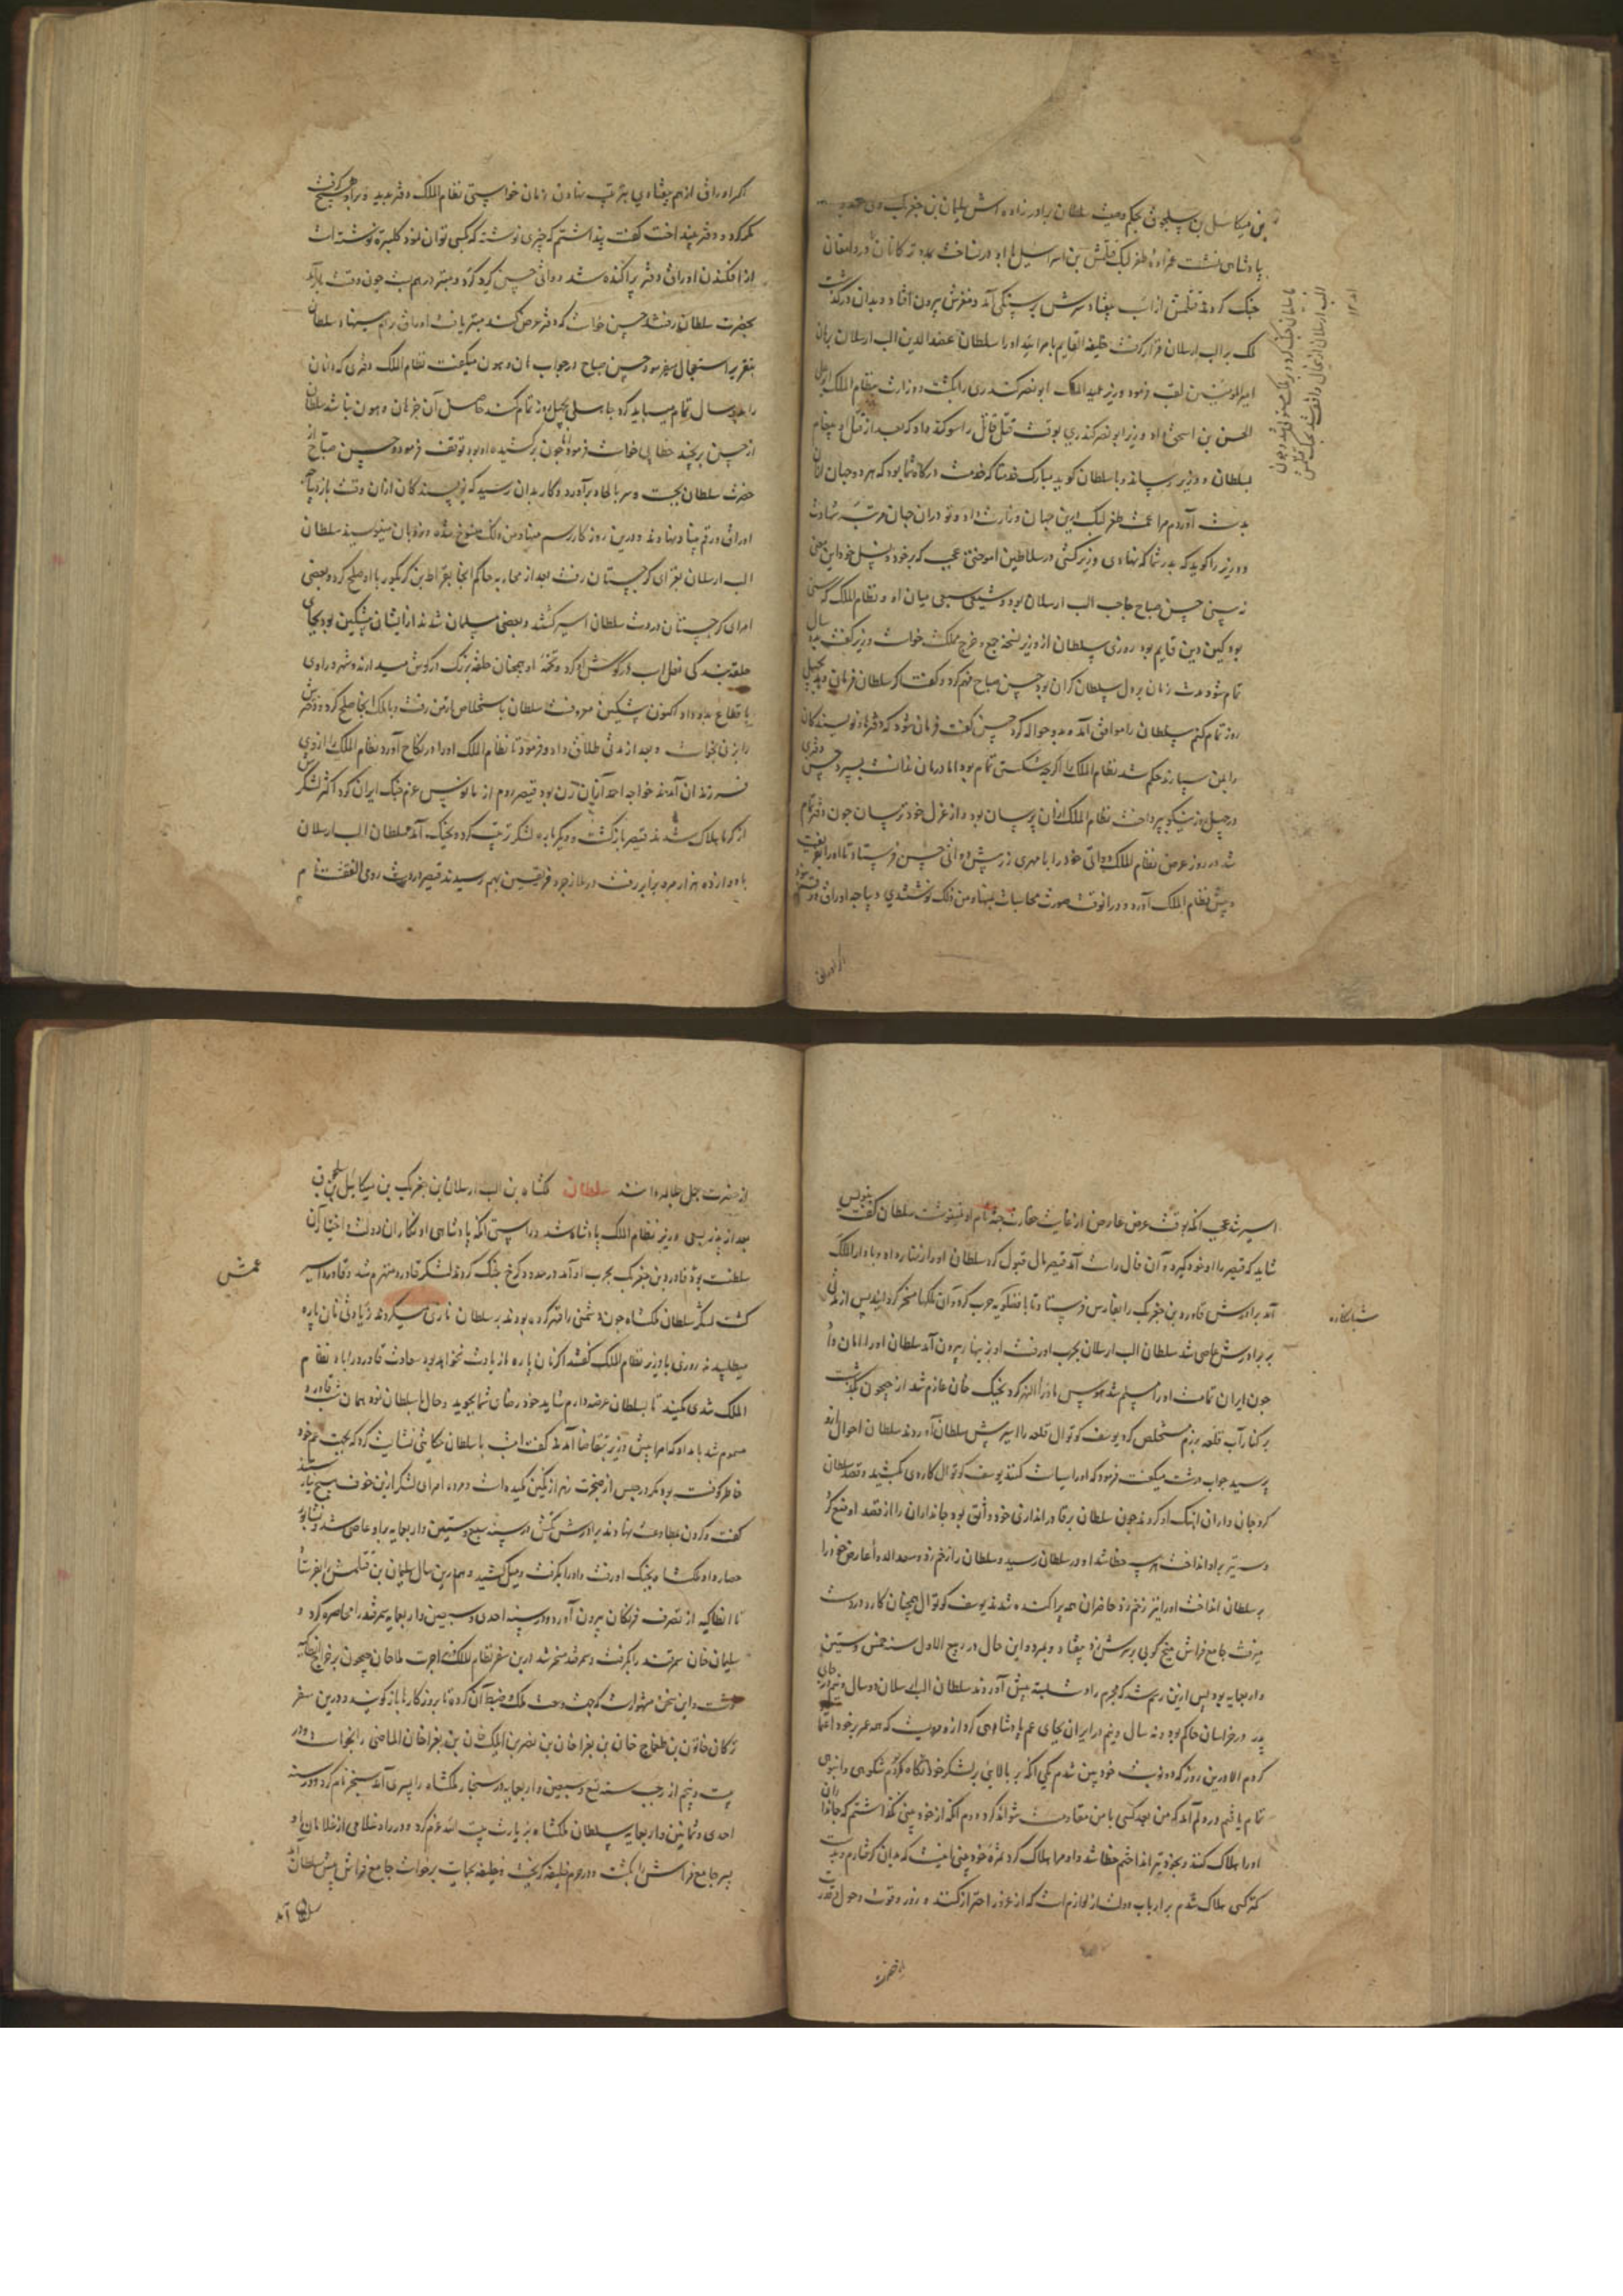 بن میکاسل بن سلجوق بحکم وصیت سلطان برادرزاده اش سلیمان بن جغربک ولی عهد بود
پادشاهی نشست عم زاده طغرلبک قتلمش بن اسرائیل با او در ساخت بمدد ترکانان در دامغان
جنک کردند قتلمش از اسب بیفتاد سرش بر سنکی آمد و مغزش بیرون افتاد و بدان درکذشت
ملک بر الب ارسلان قرار کرفت خلیفه القایم بامر الله او را سلطان عضد الدین الب ارسلان برهان
امیر المومنین لقب فرمود وزیر عمید الملک ابو نصر کندری را بکشت و وزارت بنظام الملک ابو علی
الحسن بن اسحق داد وزیر ابو نصر کندری بوقت قتل قاتل را سوکند داد که بعد از قتل او پیغام
بسلطان و وزیر رساند و با سلطان کوید مبارک خدمتا که خدمت درکاه شما بود که هر دو جهان ازان
بدست آوردم مرا عمت طغرلبک این جهان وزارت داد و تو دران جهان مرتبه شهادت
و وزیر را کوید که بد رسما که نهادی وزیر کشی در سلاطین آموختی عجب که بر خود و نسل خود این معنی
نه بینی حسن صباح حاجب الب ارسلان بود و شیعی سبعی میان او و نظام الملک که سنی
بود کین دین قایم بود روزی سلطان از وزیر نسخه جمع و خرج مملکت خواست وزیر کفت بده سال
تمام شود مدت زمان بر دل سلطان کران بود حسن صباح فهم کرد و کفت اکر سلطان فرمان دهد بچهل
روز تمام کنم سلطان را موافق آمد و بدو حواله کرد حسن کفت فرمان شود که دفترها و نویسندکان
را بمن سپارند حکم شد نظام الملک را اکرچه شکستی تمام بود اما درمان ندانست بسپرد حسن دفتری
در چهل روز نیکو بپرداخت نظام الملک ازان پرسان بود و از عزل خود ترسان چون دفتر تمام
شد در روز عرض نظام الملک دواتی خود را با مهری زر پیش دواتی حسن فرستاد تا او را بفریفت
و پیش نظام الملک آورد و در آنوقت صورت محاسبات بنهاد من ذلک نوشتندی و پیاجه اوراق دفتر
الب ارسلان ازین حال واقف شد بجنک قتلمش
اکر اوراق
اکر اوراق از هم بیفتادی بترتیب نهادن زمان خواستی نظام الملک دفتر بدید و براو هیچ کرفت
نکرد و دفتر بینداخت کفت پنداشتم که چیزی نوشته که کسی توان نمود کلپتره نوشته است
از افکندن اوراق دفتر پراکنده شد دواتی حسن کرد کرد و بستر درهم بست چون وقت بازآمد
بحضرت سلطان رفتند حسن خواست که دفتر عرض کند مبتر یافت اوراق برهم مینهاد سلطان
بتقریر استعجال میفرمود حسن صباح در جواب هان و هون میکفت نظام الملک دفتری که دانایان
را بده سال تمام میباید کرد جاهلی بچهل روز تمام کند حاصل آن جز هان و هون نباشد سلطان
از حسن برنجید خطا بی خواست فرمود چون برکشیده او بود توقف فرمود حسن صباح از
حضرت سلطان بجست و سر بالحاد برآورد و کار بدان رسید که نویسندکان ازان وقت باز دیباجه
اوراق و رقم بنا نهادند و درین روزکار رسم مینا و من ذلک منسوخ شده و بزبان مینویسند سلطان
الب ارسلان بغزای کرجستان رفت بعد از محاربه حاکم انجا بقراط بن کریکور با او صلح کرد و بعضی
امرای کرجستان در دست سلطان اسیر کشتند و بعضی مسلمان شدند از ایشان بیشکین بود بجای
حلقه بندکی نعل اسب در کوش او کرد و تخمه او همچنان حلقه بزرک در کوش میدارند و شهر دراوی
باقطاع بدو داد اکنون بشکین معروفست سلطان باستخلاص ارمن رفت و با ملک انجا صلح کرد و دختر ش
را بزن بخواست و بعد از مدتی طلاق داد و فرمود تا نظام الملک او را در نکاح آورد نظام الملک را از وی
فرزندان آمدند خواجه احمد ازان زن بود قیصر روم ارمانوس عزم جنک ایران کرد اکثر لشکرش
از کرما هلاک شدند قیصر بازکشت و دیکرباره لشکر ترتیب کرد بجنک آمد سلطان الب ارسلان
با دوازده هزار مرد برابر رفت در ملازجرد فریقین بهم رسیدند قیصر در دست رومی القفت نام
اسیر شد عجب آنکه بوقت عرض عارض از غایت حقارت جثه نام او نمینوشت سلطان کفت بنویس
شاید که قیصر را او خود کیرد آن فال راست آمد قیصر مال قبول کرد سلطان او را زنهار داد و با دار الملک
آمد برادرش قاورد بن جغربک را بفارس فرستاد تا با فضلویه حرب کرد و آن ملکها مسخر کردانید پس از مدتی
شبانکاره
بر برادرش عاصی شد سلطان الب ارسلان بحرب او رفت او بزینهار بیرون آمد سلطان او را امان داد
چون ایران تمامت او را مسلم شد هوس ماوراء النهر کرد بجنک خان عازم شد از جیحون بکذشت
بر کنار آب قلعه برزم مستخلص کرد یوسف کوتوال قلعه را اسیر پیش سلطان آوردند سلطان احوال ازو
پرسید جواب درشت میکفت فرمود که او را سیاست کنند یوسف کوتوال کاردی کشید و قصد سلطان
کرد جان داران آهنک او کردند چون سلطان برقادر اندازی خود واثق بود جانداران را از قصد او منع کرد
و سه تیر براو انداخت هر سه خطا شد او در سلطان رسید و سلطان را زخم زد و سعد الدوله عارض خود را
بر سلطان انداخت او را نیز زخم زد حاضران همه پراکنده شدند یوسف کوتوال همچنان کارد در دست
میرفت جامع فراش میخ کوبی بر سرش زد بیفتاد و بمرد و این حال در ربیع الاول سنه خمس و ستین
و اربعمایه بود پس ازین رسم شد که مجرم را دست بسته پیش آوردند سلطان الب ارسلان دو سال و نیم بجای
پدر در خراسان حاکم بود و نه سال و نیم در ایران بجای عم پادشاهی کرد ازو مرویست که همه عمر بر خود اعتماد
کردم الا درین روز که دو نوبت خود بین شدم یکی آنکه بر بالائی بر لشکر خود نکاه کردم شکوهی و انبوهی
تمام یافتم در دلم آمد که من بعد کسی با من مقاومت نتواند کرد دوم آنکه از خود بینی نکذاشتم که جانداران
او را هلاک کنند و بخود تیر انداختم خطا شد و او مرا هلاک کرد ثمره خود بینی اینست که بدان کرفتارم و بدست
کمترکسی هلاک شدم بر ارباب دولت لازم است که از غدر احتراز کنند و زور و قوت و حول و قدرت
از حضرت
از حضرت جل جلاله دانند سلطان ملکشاه بن الب ارسلان بن جغربک بن میکائیل بن سلجوق
بعد از پدر بسعی وزیر نظام الملک پادشاه شد و راستی آنکه پادشاهی او بکار ان دولت و اختیار آن
سلطنت بود قاورد بن جغربک بحرب او آمد در حدود کرج جنک کردند لشکر قاورد منهزم شد و قاورد اسیر
عمش
کشت لشکر سلطان ملکشاه چون دشمنی را قهر کرده بودند بر سلطان نازی میکردند زیادتی نان پاره
میطلبیدند روزی با وزیر نظام الملک کفتند اکر نان پاره ما زیادت نخواهد بود سعادت قاورد را باد نظام
الملک شدی میکنید تا بسلطان عرضه دارم شاید خود رضای شما بجوید و حال با سلطان نمود همان شب قاورد
مسموم شد بامداد که امرا پیش وزیر بتقاضا آمدند کفت امشب با سلطان حکایتی نشایست کرد که بجهت عم خود
خاطر کوفته بود مکر در حبس از ضجرت زهر از نکین مکیده است و مرده امرای لشکر ازین خوف هیچ نیارستند
کفت و کردن بمطاوعت نهادند برادرش تکش در سنه سبع و ستین و اربعمایه براو عاصی شد و نشابور
حصار داد ملکشاه بجنک او رفت و او را بکرفت و میل کشید و هم درین سال سلیمان بن قتلمش را بفرستاد
تا انطاکیه از تصرف فرنکان بیرون آورد و در سنه احدی و سبعین و اربعمایه سمرقند را محاصره کرد و
سلیمان خان سمرقند را بکرفت و سمرقند مسخر شد درین سفر نظام الملک اجرت ملاحان جیحون بر خراج انطاکیه
نوشت و این سخن مشهور است که جهت وسعت ملک و ضبط آن کرد تا بروزکارها باز کویند و درین سفر
ترکان خاتون بن طمغاج خان بن بغراخان بن نصر بن ایلک خان بن بغراخان الماضی را بخواست و در
بیست و پنجم از رجب سنه تسع و سبعین و اربعمایه در سنجار ملکشاه را پسری آمد سنجر نام کرد و در سنه
احدی و ثمانین و اربعمایه سلطان ملکشاه بزیارت بیت الله عزم کرد و در راه غلامی از غلامان او
پسر جامع فراش را بکشت و در حرم خلیفه کریخت و خلیفه بحمایت برخواست جامع فراش پیش سلطان آمد
سلطان آمد